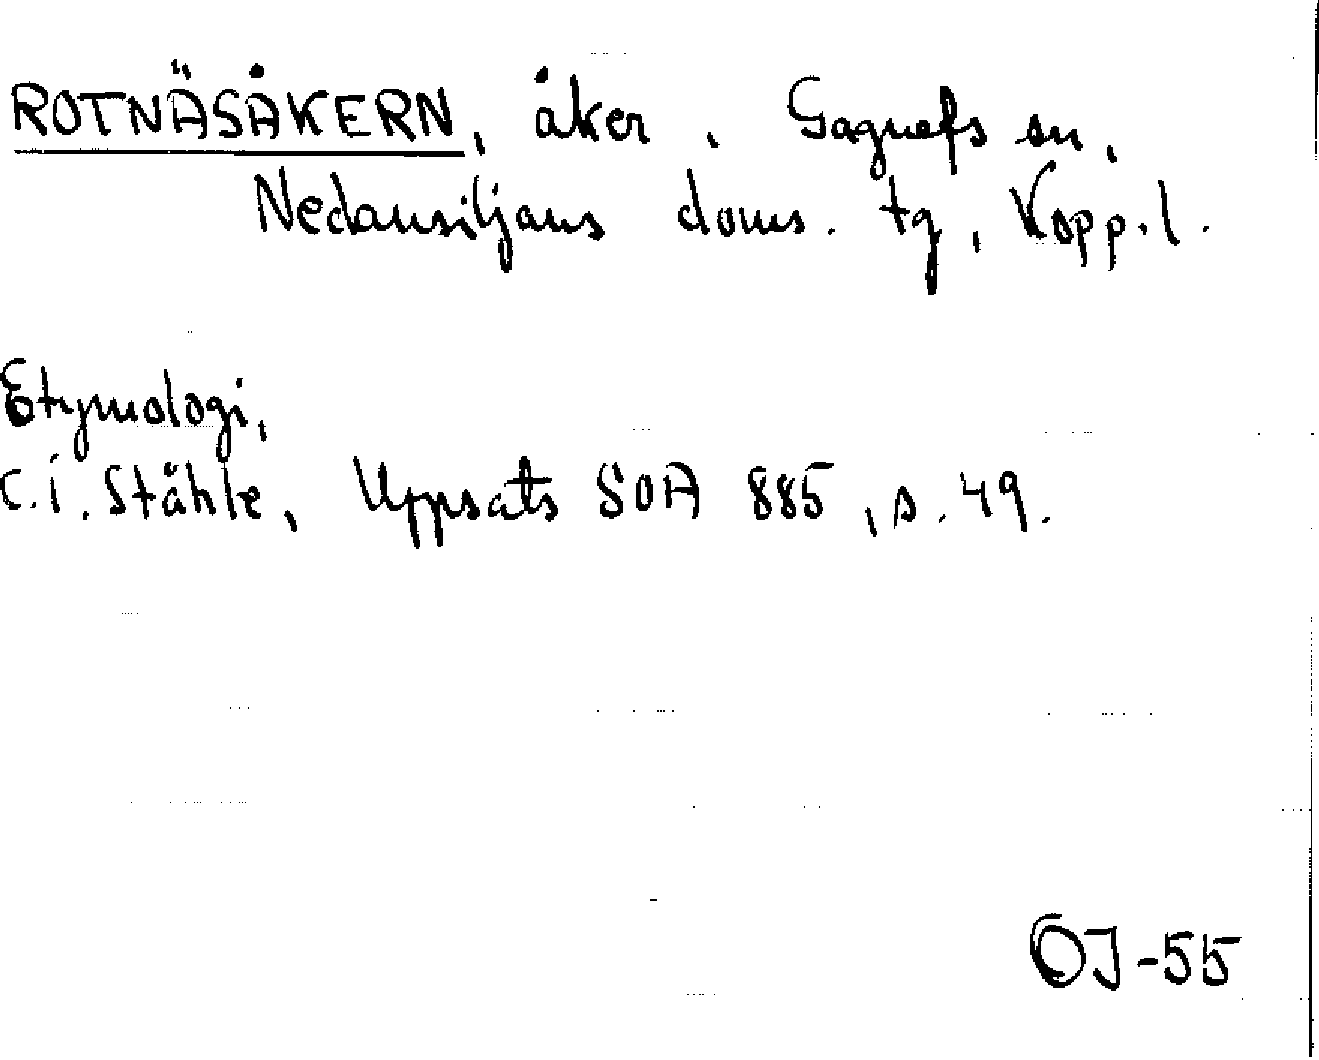 ROTNÄSÅKERN, åker, Gagnefs sn,
Nedansiljans doms. tg, Kopp. l.
Etymologi,
C.I. Ståhle, Uppsats SOA 885, s. 49.
OJ-55